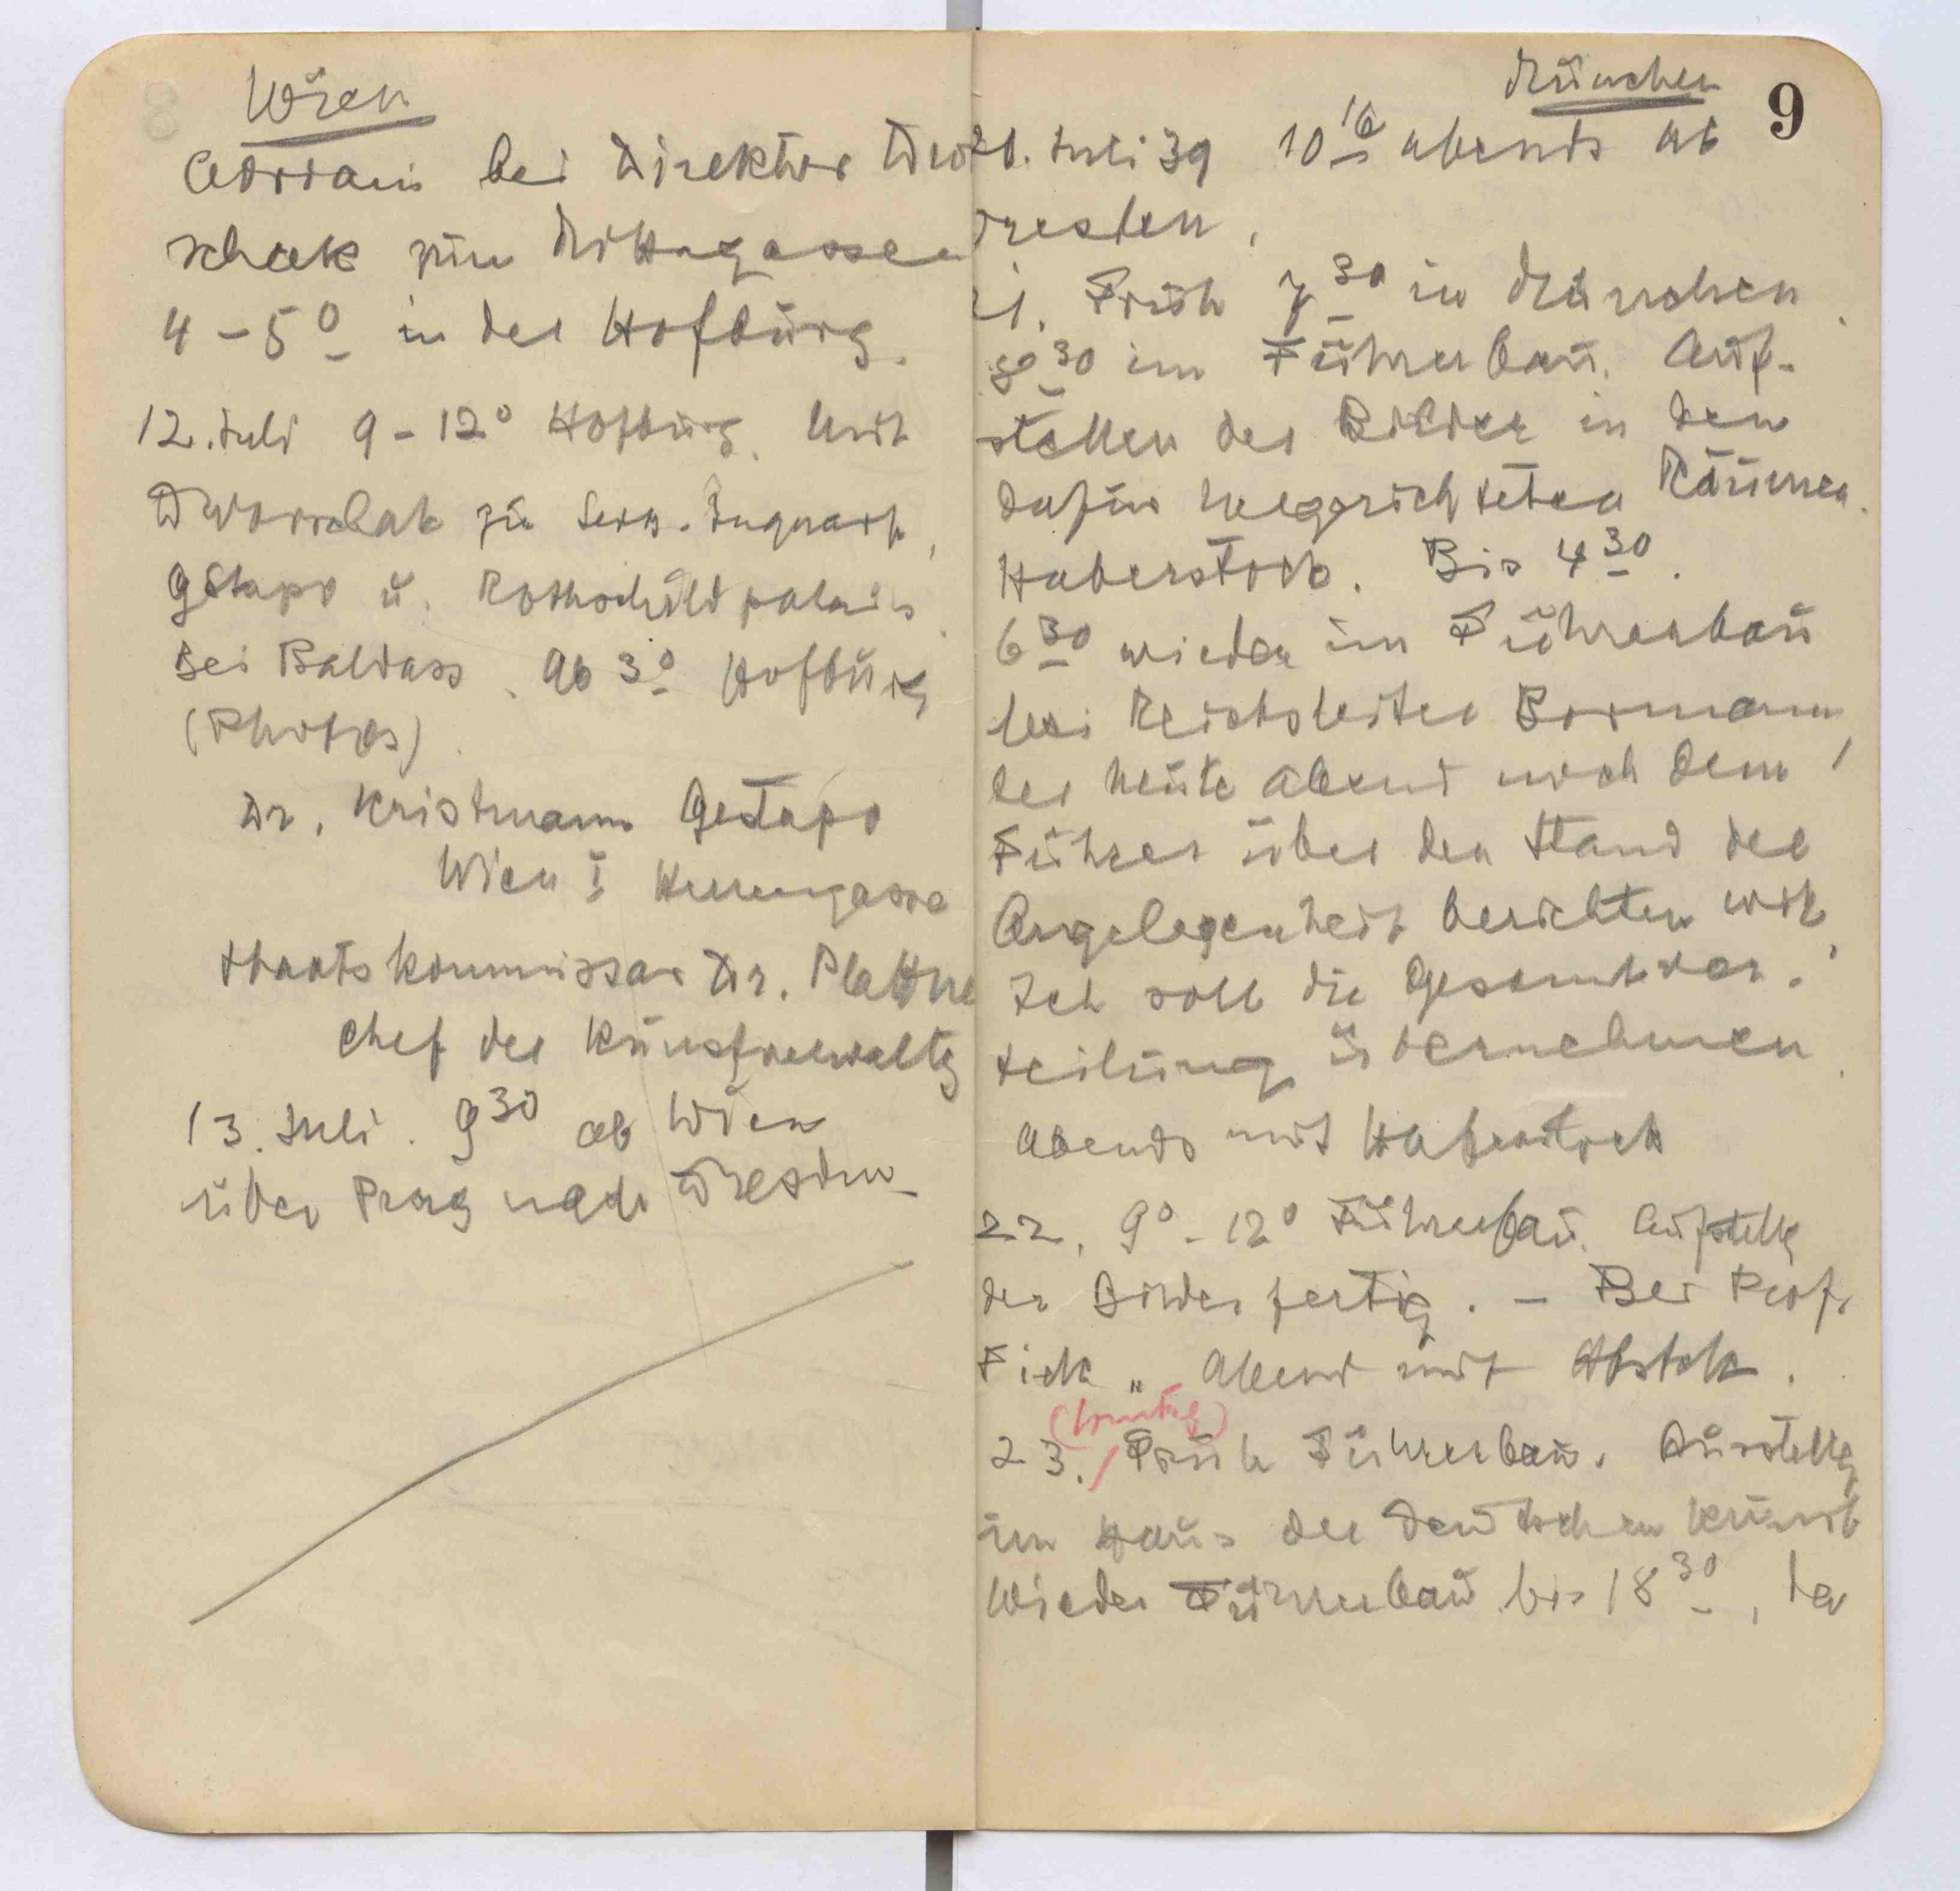 Wien
Adriani bei Direktor Dwor
schak zum Mittagessen
4 – 5⁰ in der Hofburg.
12. Juli 9 – 12⁰ Hofburg. Mit
Dworschak zu Seyss-Inquart,
GStapo u. Rothschildpalais.
Bei Baldass. Ab 3⁰ Hofburg
(Photos).
Dr. Kristmann Gestapo
Wien I Herrengasse
Staatskommissar Dr. Plattner
Chef der Kunstverwaltg
13. Juli. 9³⁰ ab Wien
über Prag nach Dresden
München
9
20. Juli 39 10¹⁶ abends ab
Dresden.
21. Früh 7³⁰ in München.
8³⁰ im Führerbau. Auf-
stellen der Bilder in den
dafür hergerichteten Räumen.
Haberstock. Bis 4³⁰.
6³⁰ wieder im Führerbau
bei Reichsleiter Bormann,
der heute Abend noch dem
Führer über den Stand der
Angelegenheit berichten will.
Ich soll die Gesamtver-
teilung übernehmen.
Abends mit Haberstock
22. 9⁰ – 12⁰ Führerbau. Aufstellg
der Bilder fertig. – Bei Prof.
Fick „ Abend mit Hbstck.
(Sonntag)
23. / Früh Führerbau. Ausstellg
im Haus der Deutschen Kunst
Wieder Führerbau bis 18³⁰, der